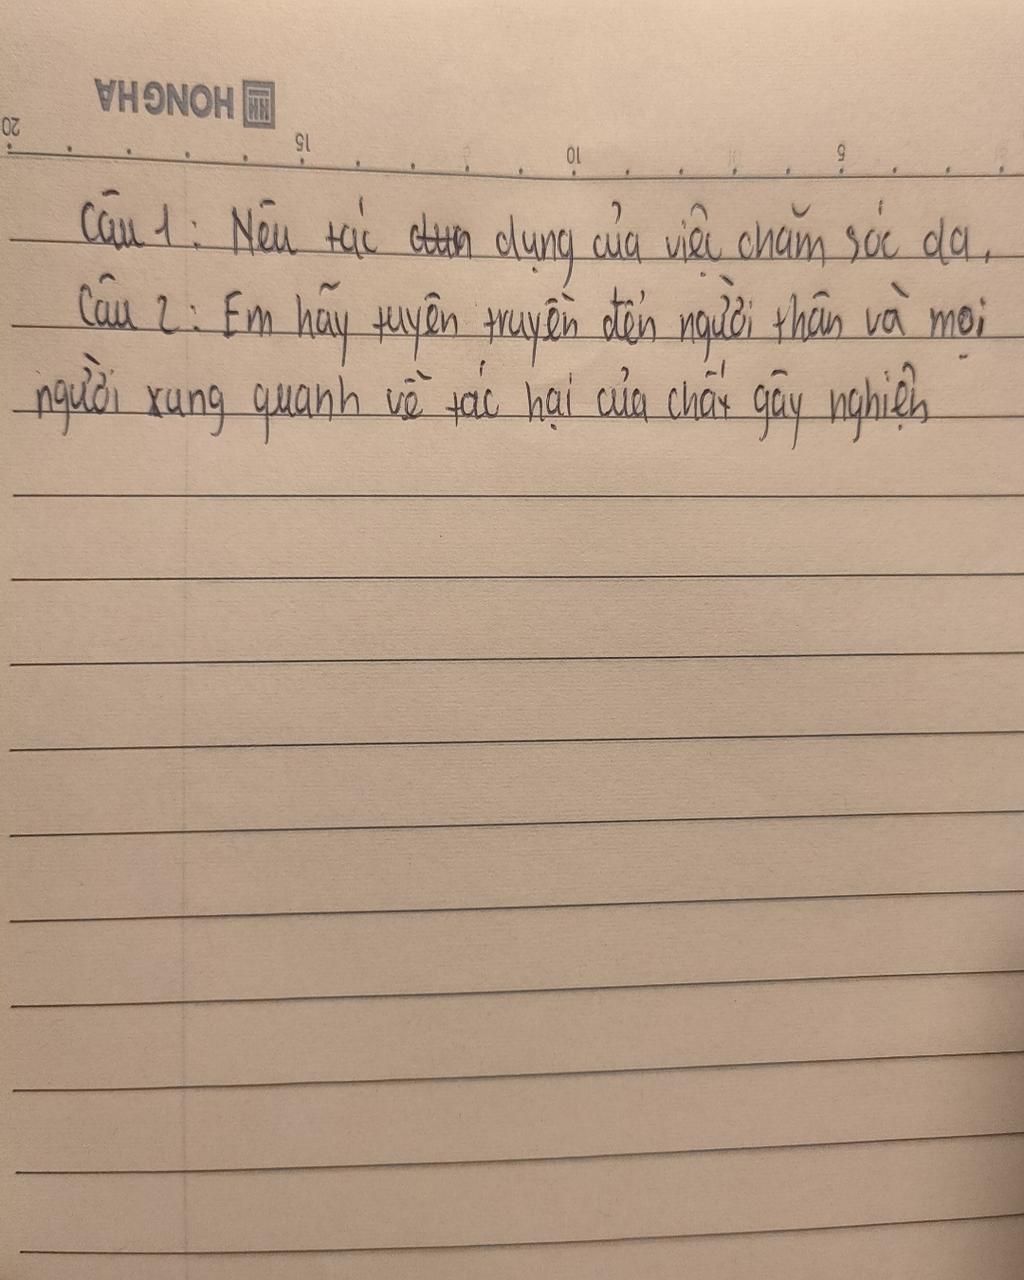 HONG HA
20 15 10 5
Câu 1: Nêu tác dụng của việc chăm sóc da.
Câu 2: Em hãy tuyên truyền đến người thân và mọi
người xung quanh về tác hại của chất gây nghiện